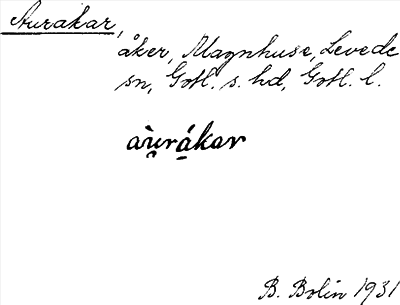 Aurakar,
åker, Magnhuse, Levede
sn, Gotl. s. hd, Gotl. l.
àu̯rá̱kar
B. Bolin 1931